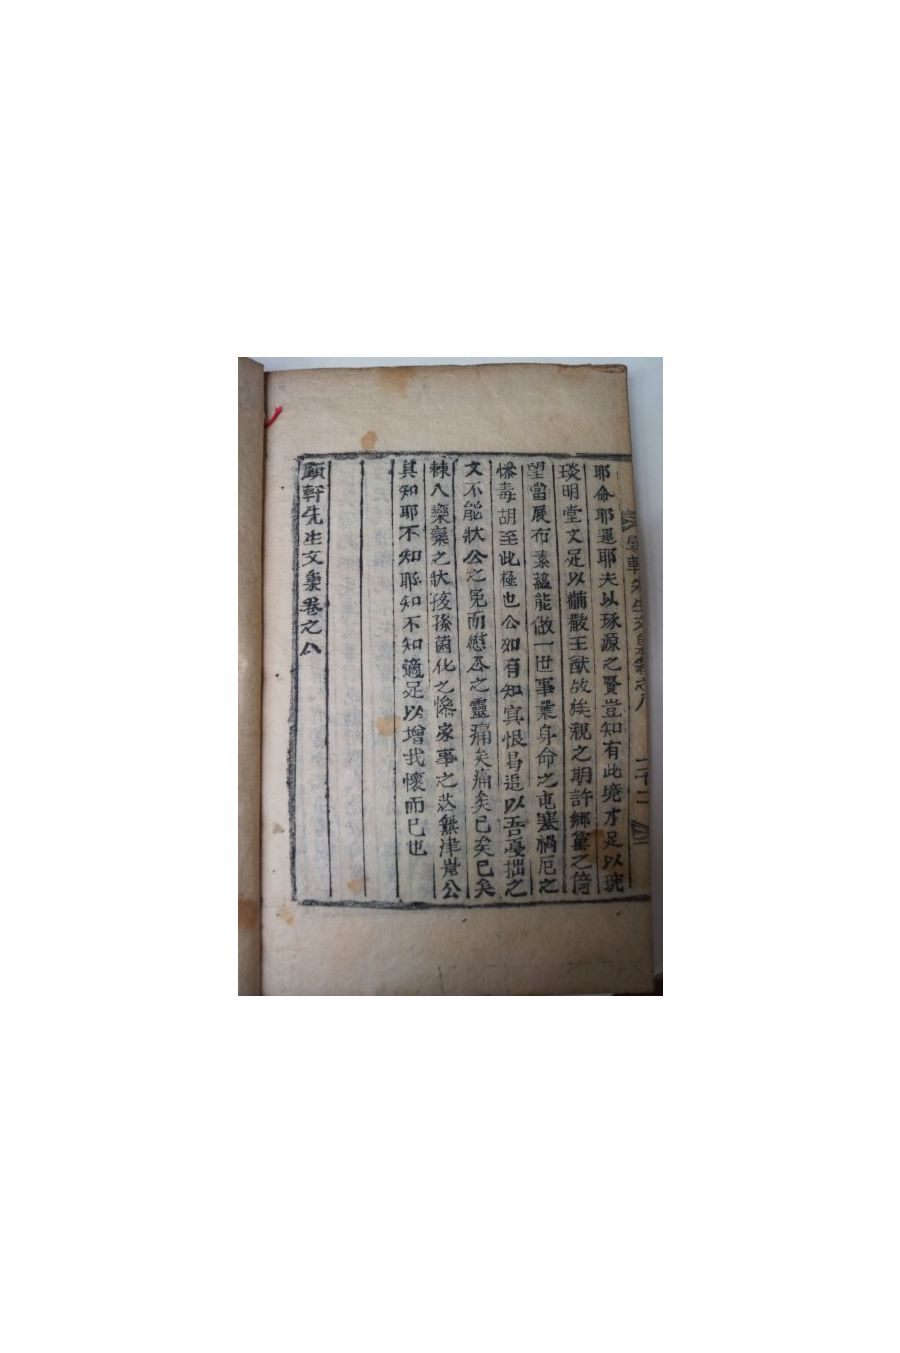 耶命耶運耶夫以琢源之賢豈知有此境才足以琬
琰明堂文足以黼黻王猷故族親之期許鄕黨之倚
望當展布素蘊能做一世事業身命之屯塞禍厄之
慘毒胡至此極也公如有知冥恨曷追以吾戇拙之
文不能狀公之冤而慰公之靈痛矣痛矣已矣已矣
棘人欒欒之狀孩孫菌化之慘家事之茫無津岸公
其知耶不知耶知不知適足以增我懷而已也
顧軒先生文集卷之八
軒先生文集卷之八 二十二